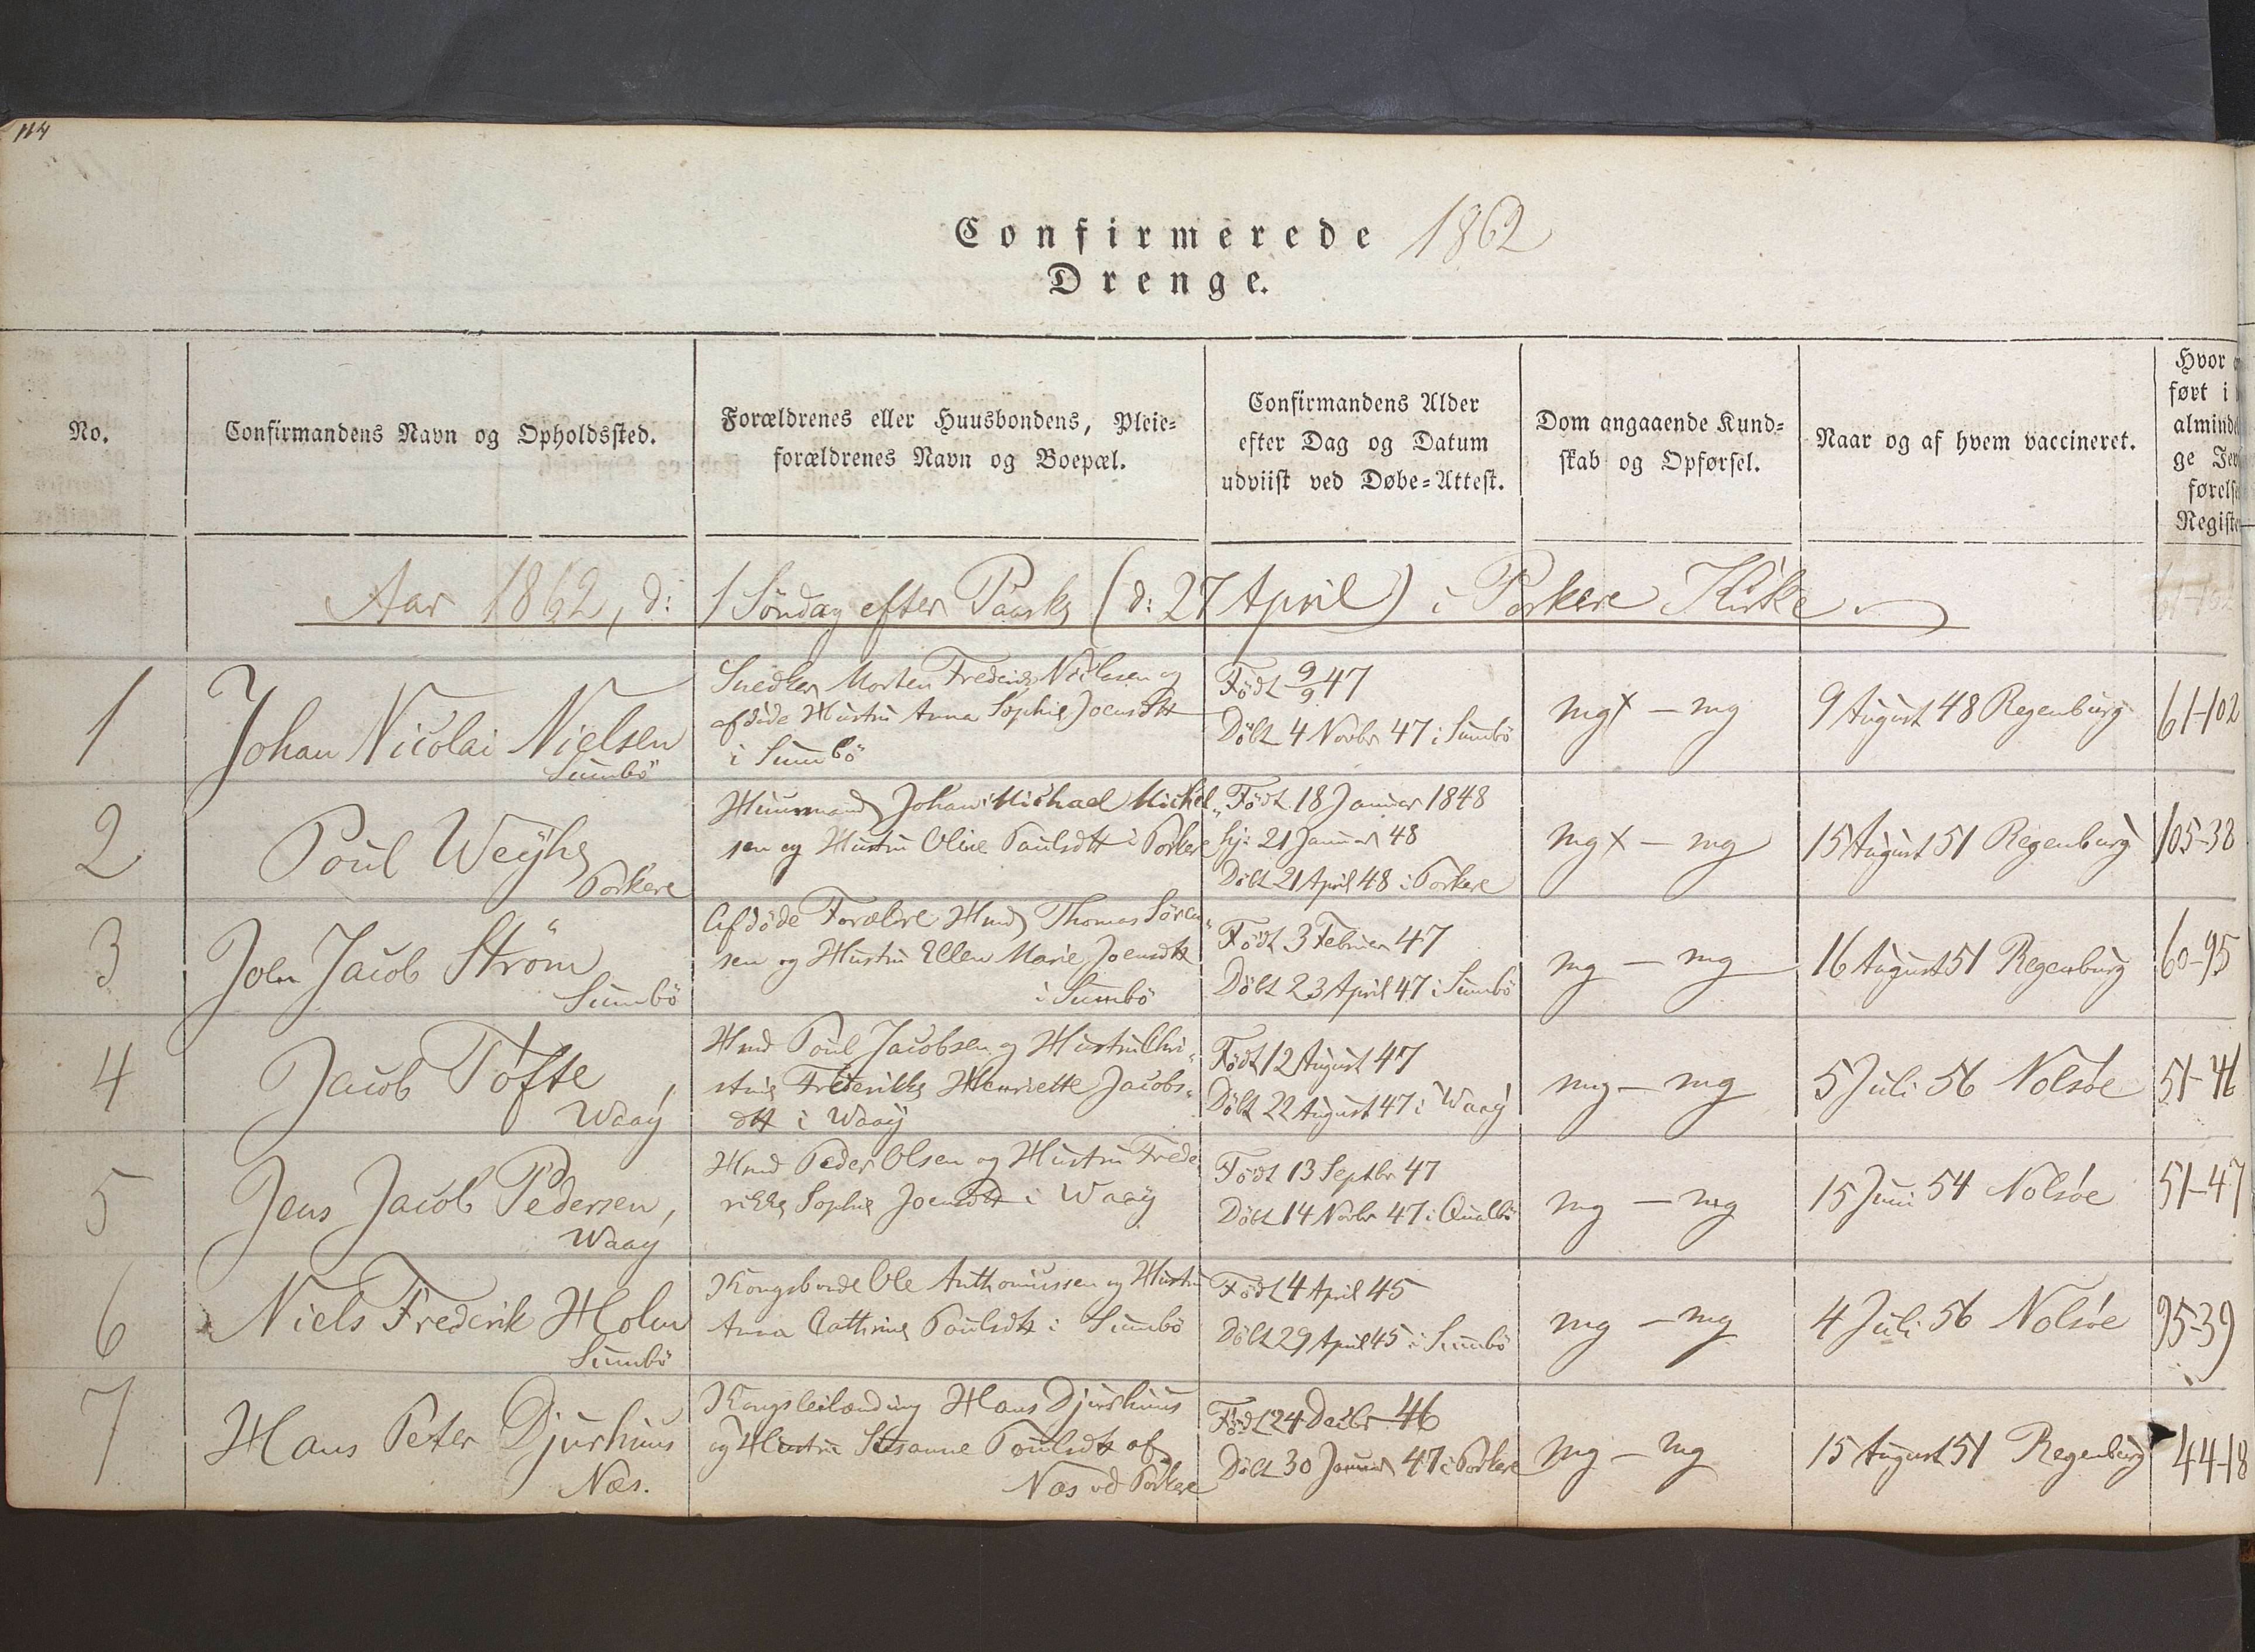 114
Confirmerede 1862
Drenge.
No.
Confirmandens Navn og Opholdssted.
Forældrenes eller Huusbondens, Pleie-
forældrenes Navn og Boepæl.
Confirmandens Alder
efter Dag og Datum
udviist ved Døbe-Attest.
Dom angaaende Kund-
skab og Opførsel.
Naar og af hvem vaccineret.
Hvor
ført i
alminde
ge Jev
førelse
Registe
Aar 1862, d: 1 Söndag efter Paaske (d: 27 April) i Porkere Kirke
1
Johan Nicolai Nielsen
Sumbö
Snedker Morten Frederik Nielsen og
afdöde Hustru Anna Sophie Joensdtt
i Sumbö
Födt 9/9 47
Döbt 4 Novbr 47 i Sumbö
mgx - mg
9 August 48 Regenburg
61-102
2
Poul Weyhe
Porkere
Huusmand Johan Michael Mickel-
sen og Hustru Oline Poulsdtt i Porkere
Födt 18 Januar 1848
hj: 21 Januar 48
Döbt 21 April 48 i Porkere
mgx - mg
15 August 51 Regenburg
105-38
3
Joen Jacob Ström
Sumbö
Afdöde Forældre Hmd Thomas Sören-
sen og Hustru Ellen Marie Joensdtt
i Sumbö
Födt 3 Februar 47
Döbt 23 April 47 i Sumbö
mg - mg
16 August 51 Regenburg
60-95
4
Jacob Töfte,
Waay
Hmd Poul Jacobsen og Hustru Chri-
stine Frederikke Henriette Jacobs-
dtt i Waay
Födt 12 August 47
Döbt 22 August 47 i Waay
mg - mg
5 Juli 56 Nolsöe
51-46
5
Jens Jacob Pedersen,
Waay
Hmd Peder Olsen og Hustru Frede-
rikke Sophie Joensdtt i Waay
Födt 13 Septbr 47
Döbt 14 Novbr 47 i Qualbö
mg - mg
15 Juni 54 Nolsöe
51-47
6
Niels Frederik Holm
Sumbö
Kongsbonde Ole Anthoniussen og Hustru
Anna Cathrine Poulsdtt i Sumbö
Födt 4 April 45
Döbt 29 April 45 i Sumbö
mg - mg
4 Juli 56 Nolsöe
95-39
7
Hans Peter Djurhuus
Næs.
Kongsleilænding Hans Djurhuus
og Hustru Susanne Poulsdtt af
Næs ved Porkere
Födt 24 Decbr 46
Döbt 30 Januar 47 i Porkere
mg - mg
15 August 51 Regenburg
44-18